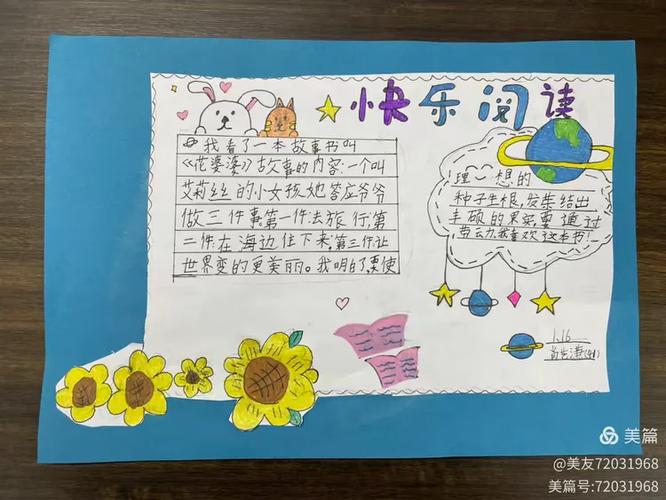 快乐阅读
我看了一本故事书叫
《花婆婆》故事的内容:一个叫
艾莉丝的小女孩她答应爷爷
做三件事第一件:去旅行,第
二件:在海边住下来,第三件:让
世界变的更美丽。我明白了,要使
理想的
种子生根,发芽结出
丰硕的果实,要通过
劳动,我喜欢这本书!
1.16
美篇
@美友72031968
美篇号:72031968